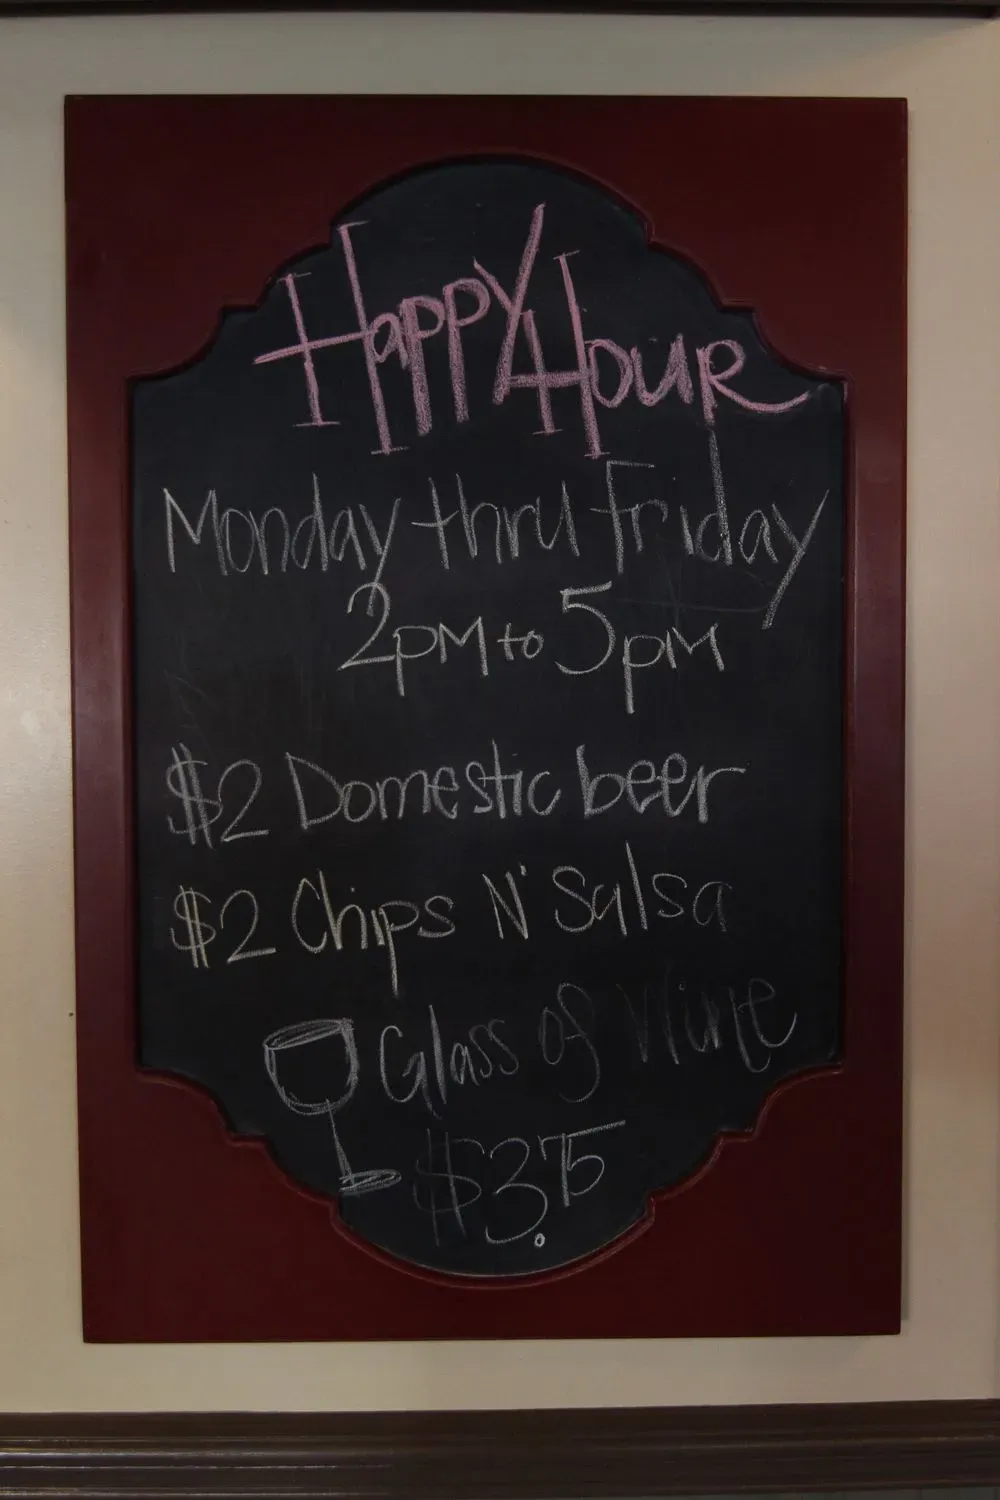 Happy Hour
Monday thru Friday
2pm to 5pm
$2 Domestic beer
$2 Chips N' Salsa
Glass of Wine
$3.75